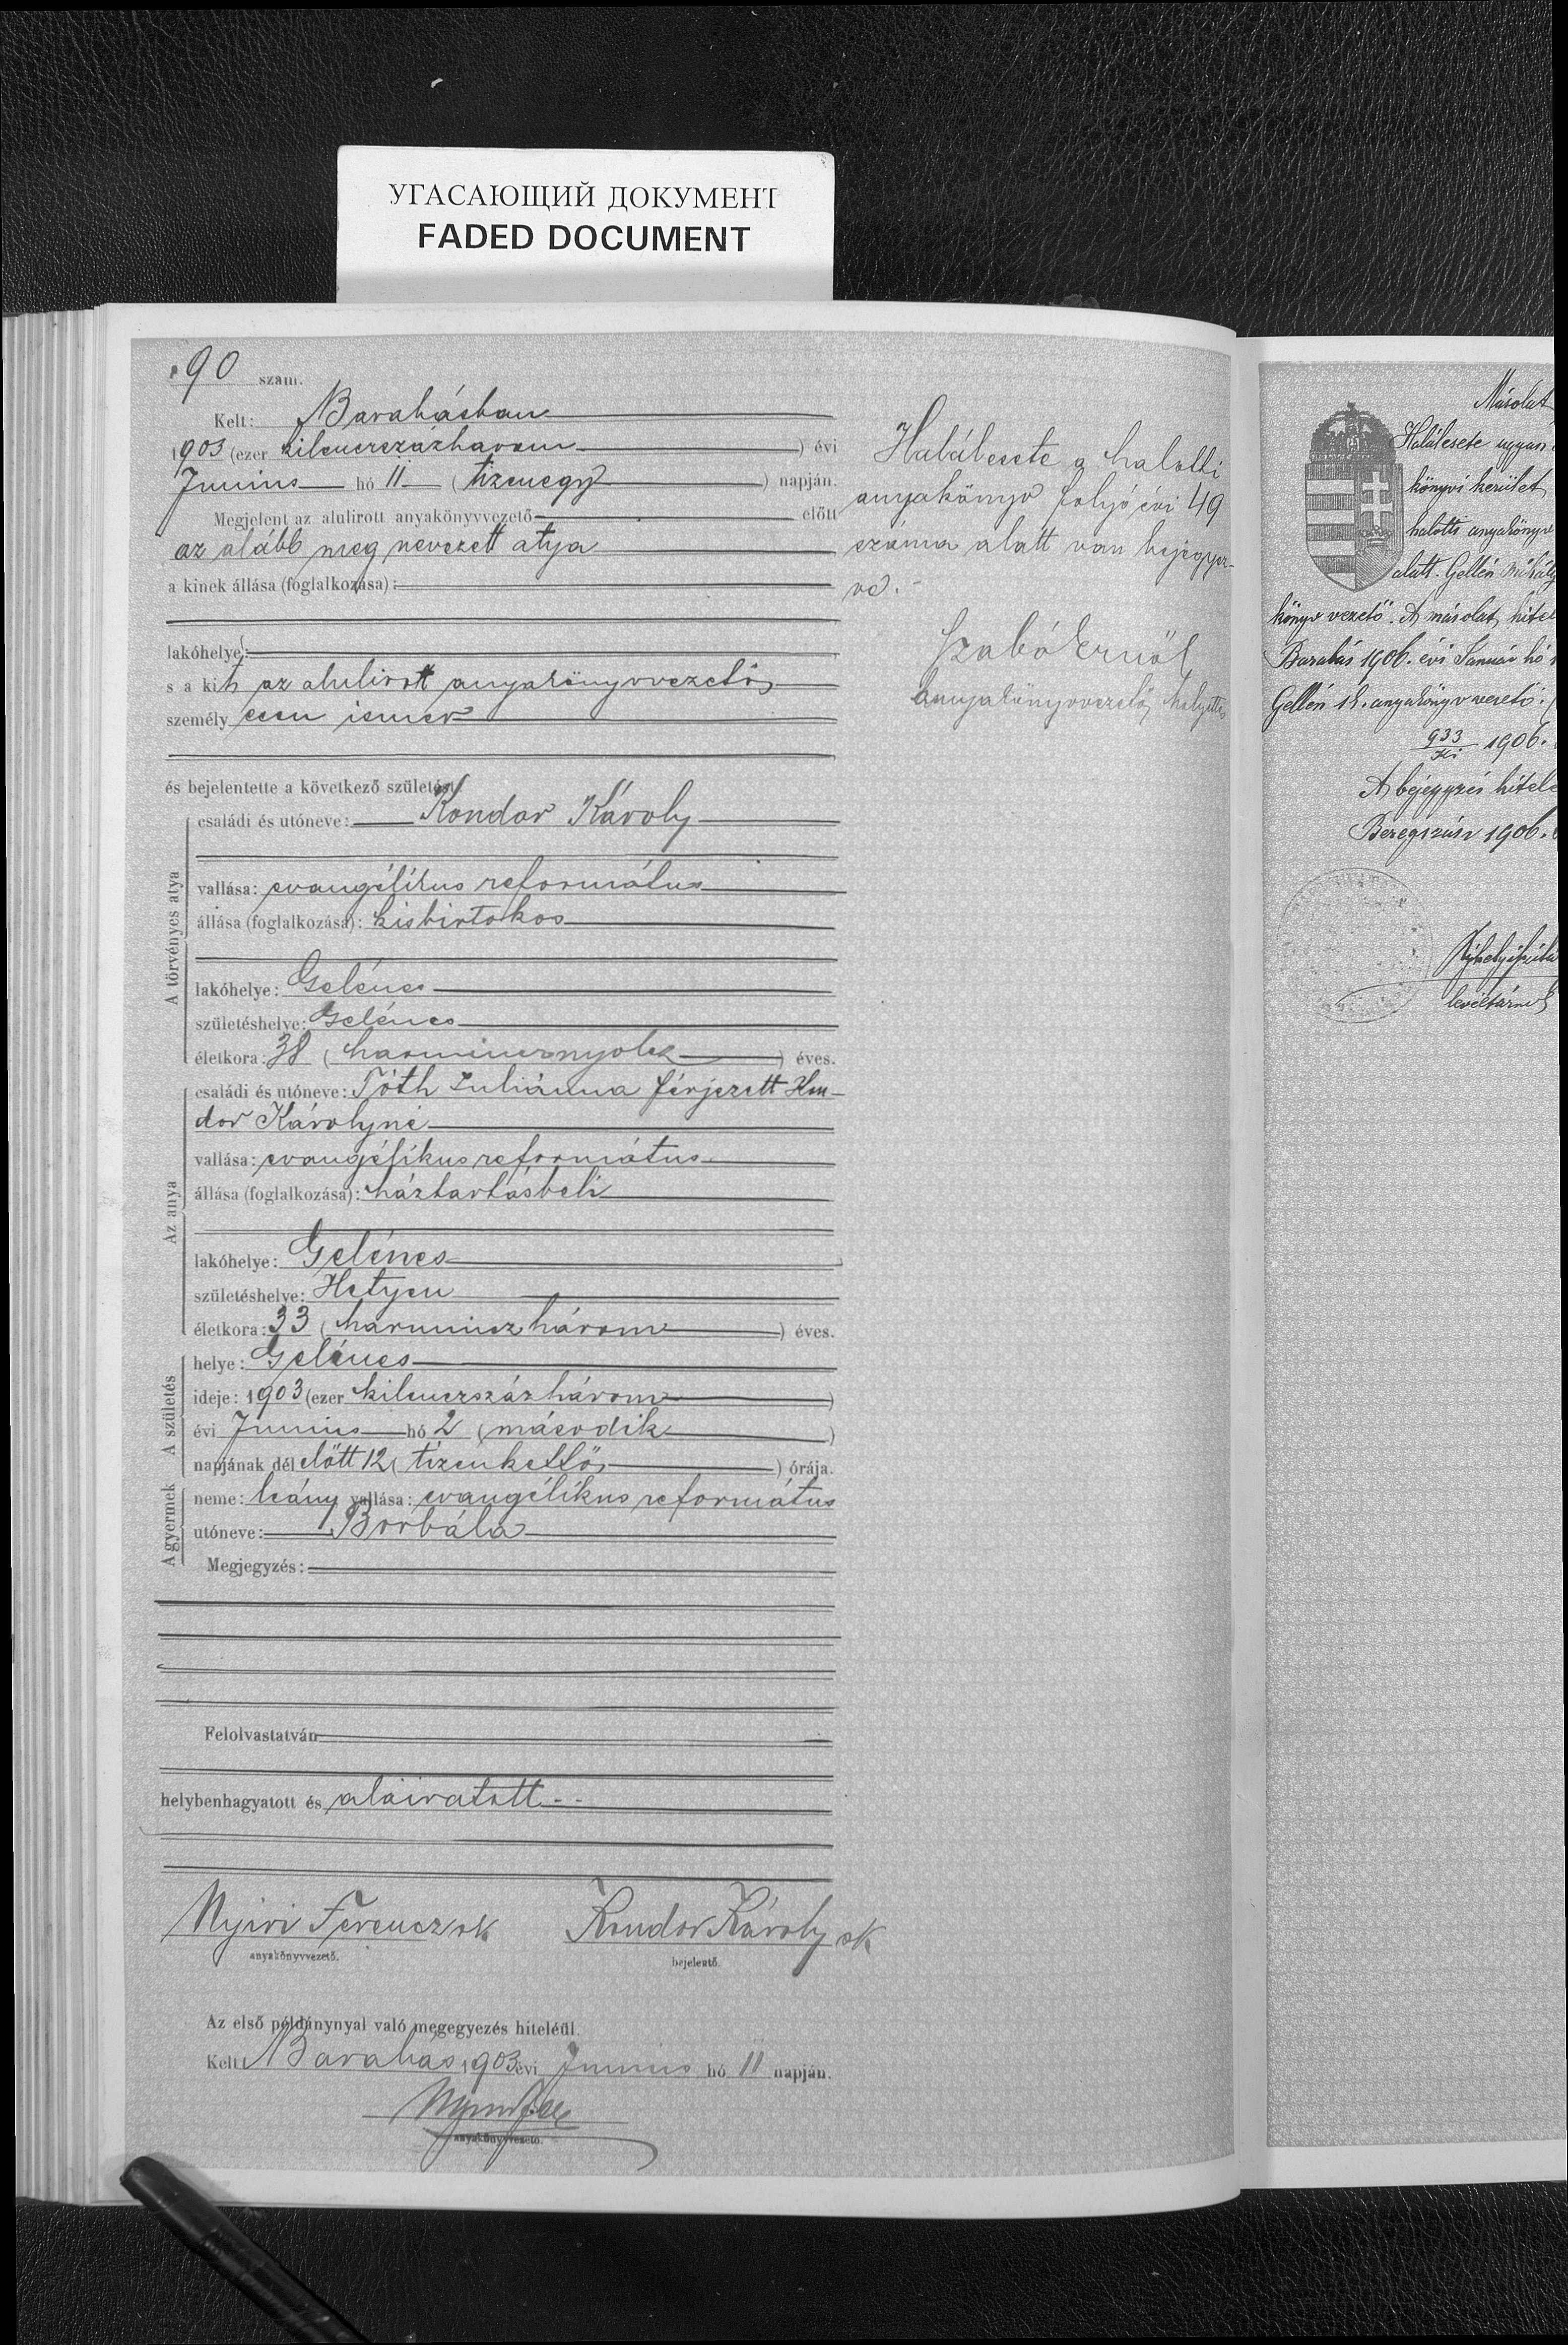 УГАСАЮЩИЙ ДОКУМЕНТ
FADED DOCUMENT
90 szám.
Kelt: Barabásban
1903 (ezer kilenczszázhárom) évi
Junius hó 11 (tizenegy) napján.
Megjelent az alulirott anyakönyvvezető előtt
az alább meg nevezett atya
a kinek állása (foglalkozása):
lakóhelye:
s a kit az alulirott anyakönyvvezető
személyesen ismer
és bejelentette a következő születést:
A törvényes atya
családi és utóneve: Kondor Károly
vallása: evangélikus református
állása (foglalkozása): kisbirtokos
lakóhelye: Gelénes
születéshelye: Gelénes
életkora: 38 (harmincznyolcz) éves.
Az anya
családi és utóneve: Tóth Juliánna férjezett Kon-
dor Károlyné
vallása: evangélikus református
állása (foglalkozása): háztartásbeli
lakóhelye: Gelénes
születéshelye: Hetyen
életkora: 33 (harminczhárom) éves.
A születés
helye: Gelénes
ideje: 1903 (ezer kilenczszázhárom)
évi Junius hó 2 (második)
napjának dél előtt 12 (tizenkettő) órája.
A gyermek
neme: leány vallása: evangélikus református
utóneve: Borbála
Megjegyzés:
Felolvastatván
helybenhagyatott és aláiratott
Nyiri Ferencz sk Kondor Károly sk
anyakönyvvezető. bejelentő.
Az első példánynyal való megegyezés hiteléül.
Kelt Barabás 1903 évi Junius hó 11 napján.
anyakönyvvezető.
Halálesete a halotti
anyakönyv folyó évi 49
száma alatt van bejegyez-
ve.
Szabó Ernő
anyakönyvvezető helyettes
Másolat
Halálesete ugyan
könyvi kerület
halotti anyakönyv
alatt. Gellén Mihály
könyv vezető. A másolat hitel
Barabás 1906. évi Január hó
Gellén anyakönyv vezető.
933 1906.
A bejegyzés hitele
Beregszász 1906.
levéltárnok